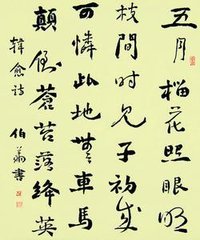 五月榴花照眼明
枝間時見子初成
可憐此地無車馬
顛倒蒼苔落絳英
韓愈詩
伯 書